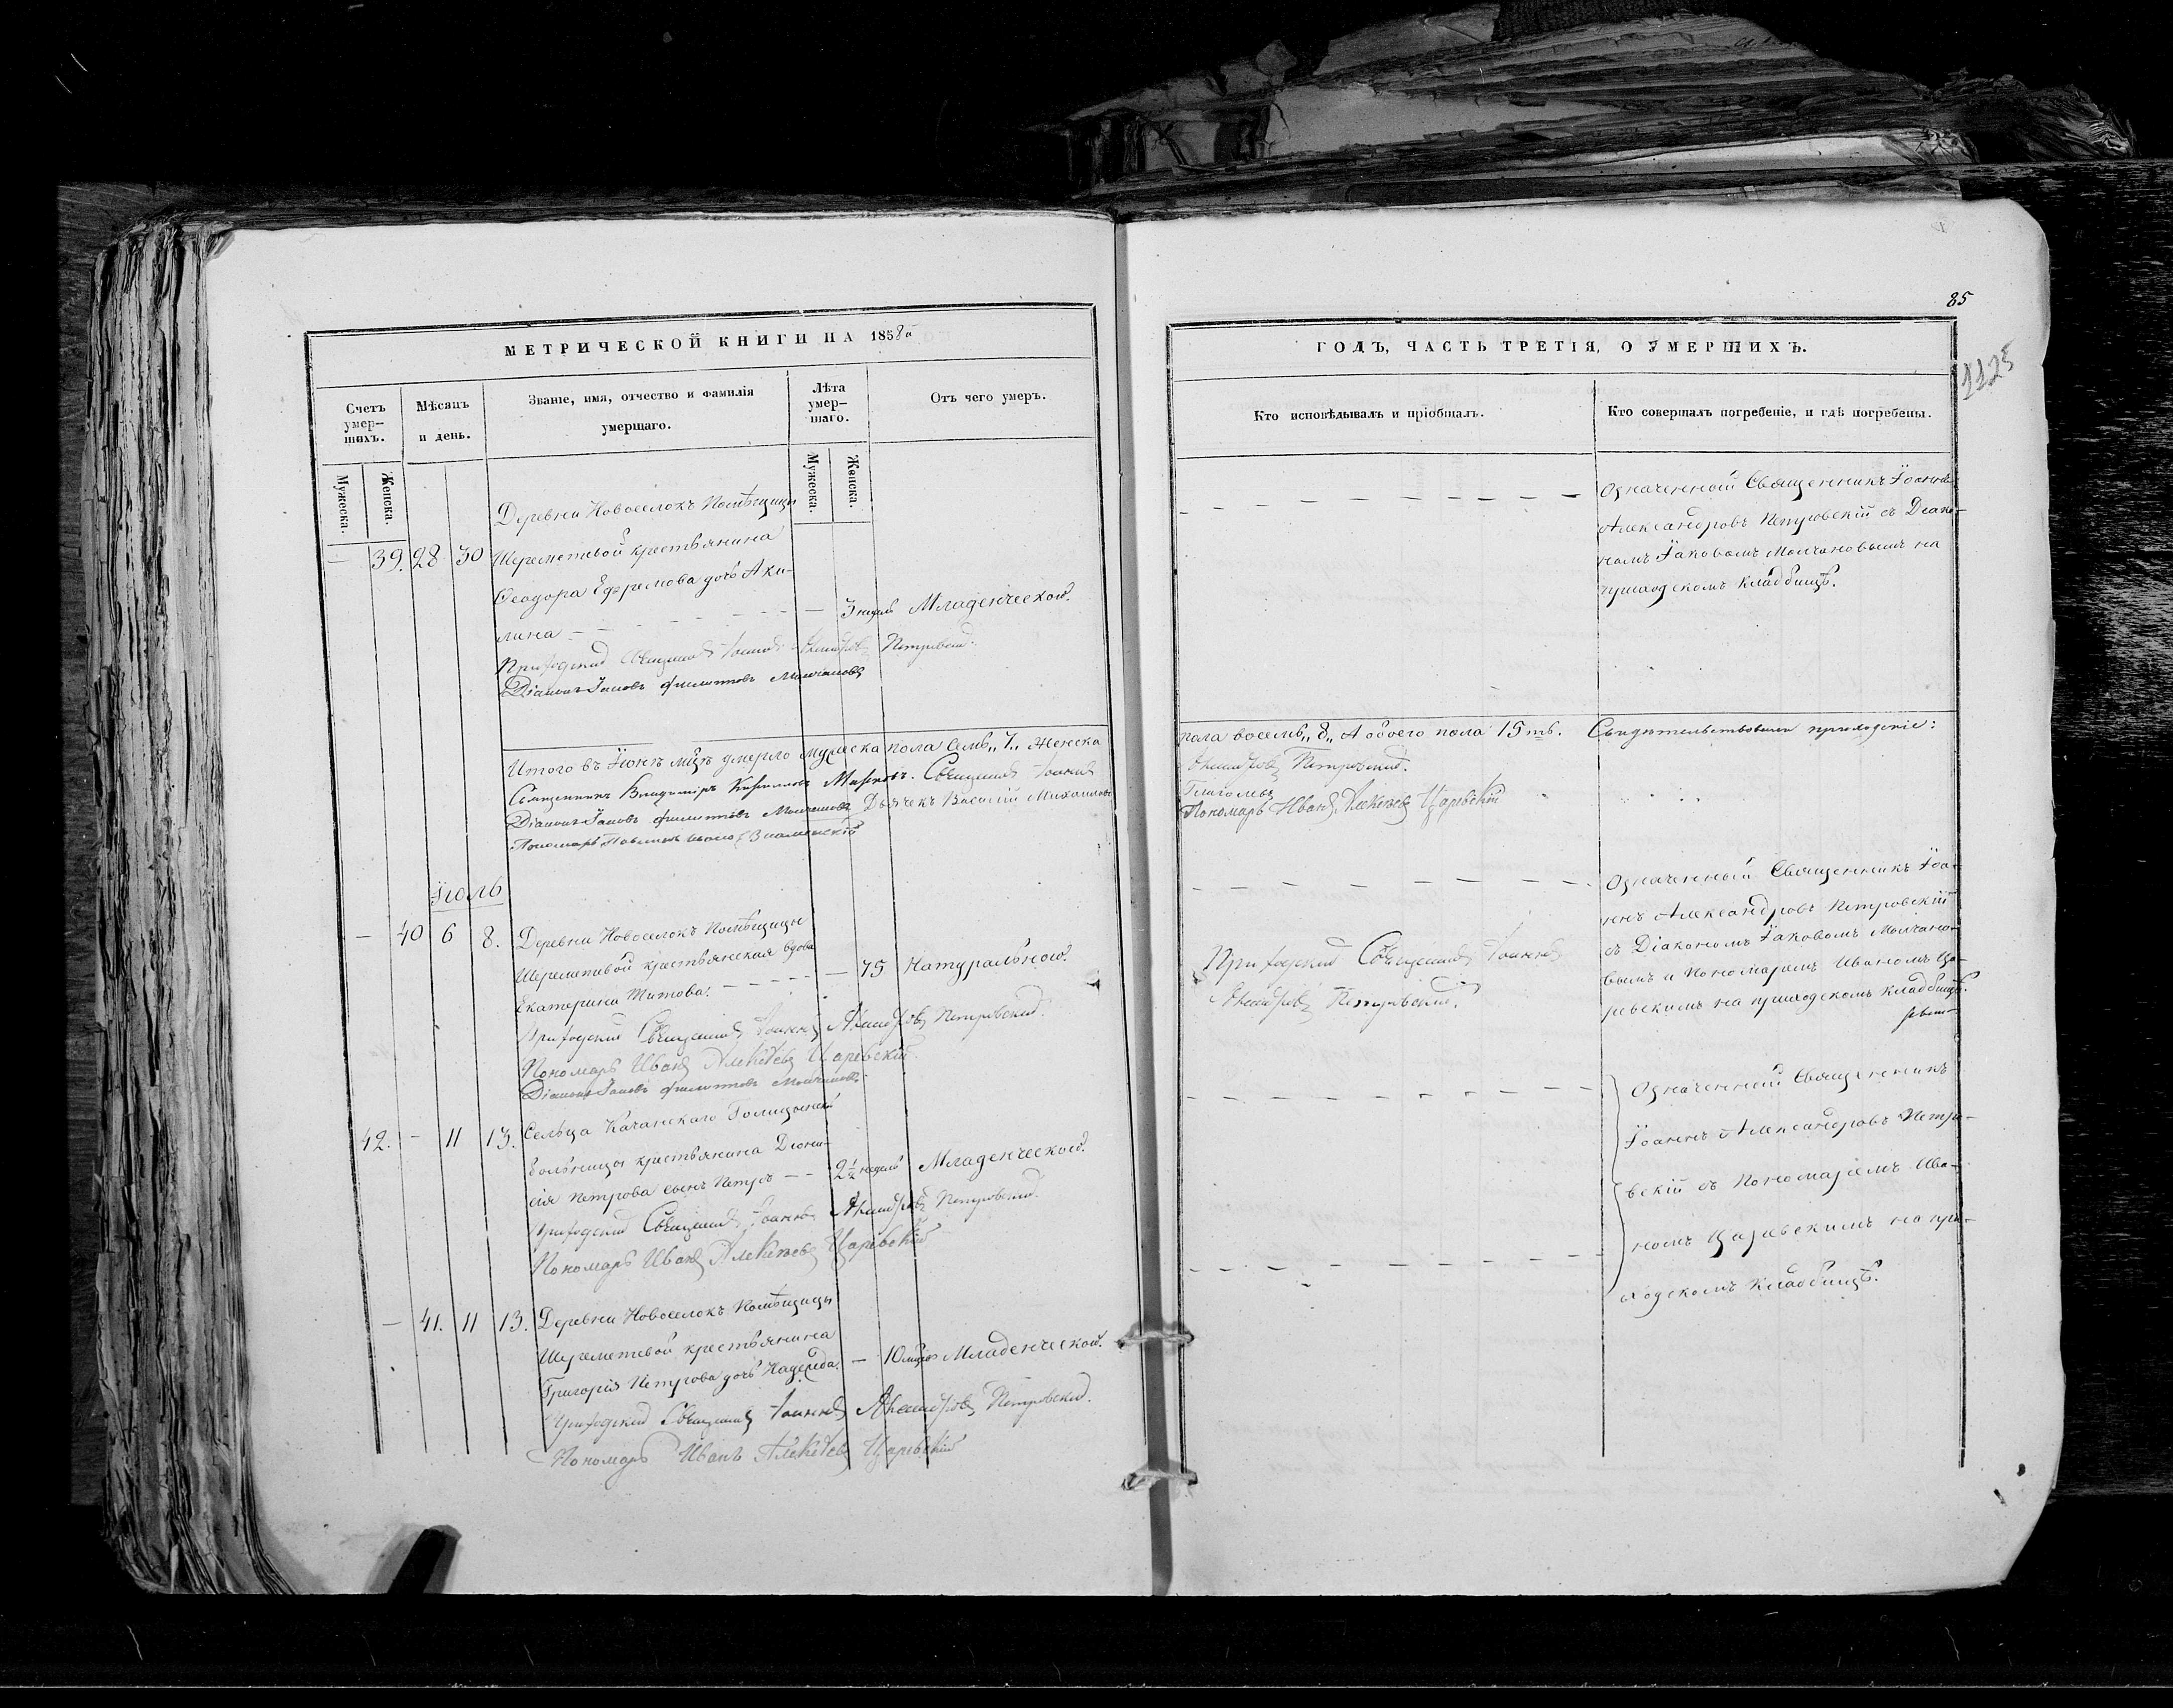 МЕТРИЧЕСКОЙ КНИГИ НА 1858й
Счетъ умер-шихъ.
Мѣсяцъ и день.
Званіе, имя, отчество и фамилія умершаго.
Лѣта умер-шаго.
Отъ чего умеръ.
Мужеска.
Женска.
Мужеска.
Женска.
Деревни Новоселокъ Помѣщицы
— 39. 28 30 Шереметевой крестьянина
Ѳеодора Ефремова дочь Аки-
лина — — 3 нед. Младенческой.
Приходскій Священникъ Іоаннъ Александровъ Петровскій.
Діаконъ Іаковъ Филиповъ Молчановъ
Итого въ Іюнѣ мцѣ умерло мужеска пола семь „7„ женска
Священникъ Владиміръ Священникъ Іоаннъ
Діаконъ Іаковъ Филиповъ Молчановъ Дьячекъ Василій Михайловъ
Пономарь Знаменскій
Іюль
— 40 6 8. Деревни Новоселокъ Помѣщицы
Шереметевой крестьянская вдова
Екатерина Титова. — — 75 Натуральной.
Приходскій Священникъ Іоаннъ Александровъ Петровскій.
Пономарь Иванъ Алексѣевъ Царевскій.
Діаконъ Іаковъ Филиповъ Молчановъ.
42. — 11 13. Сельца Качанскаго Голицынской
больницы крестьянина Діони-
сія Петрова сынъ Петръ — — 2½ недѣль Младенческой.
Приходскій Священникъ Іоаннъ Александровъ Петровскій.
Пономарь Иванъ Алексѣевъ Царевскій
— 41. 11 13. Деревни Новоселокъ Помѣщицы
Шереметевой крестьянина
Григорія Петрова дочь Надежда. — 10 Младенческой.
Приходскій Священникъ Іоаннъ Александровъ Петровскій.
Пономарь Иванъ Алексѣевъ Царевскій
85
1125
ГОДЪ, ЧАСТЬ ТРЕТІЯ, О УМЕРШИХЪ.
Кто исповѣдывалъ и пріобщалъ.
Кто совершалъ погребеніе, и гдѣ погребены.
Означенной Священникъ Іоаннъ
Александровъ Петровскій съ Діако-
номъ Іаковомъ Молчановымъ на
приходскомъ кладбищѣ.
пола восемь „8„ А обоего пола 15ть. Свидѣтельствовали
Александровъ Петровскій.
Пономарь Иванъ Алексѣевъ Царевскій
Приходскій Священникъ Іоаннъ
Александровъ Петровскій.
Означенной Священникъ Іоа-
ннъ Александровъ Петровскій
съ Діакономъ Іаковомъ Молчано-
вымъ и Пономаремъ Иваномъ Ца-
ревскимъ на приходскомъ кладбищѣ.
Означенной Священникъ
Іоаннъ Александровъ Петро-
вскій съ Пономаремъ Ива-
номъ Царевскимъ на при-
ходскомъ кладбищѣ.